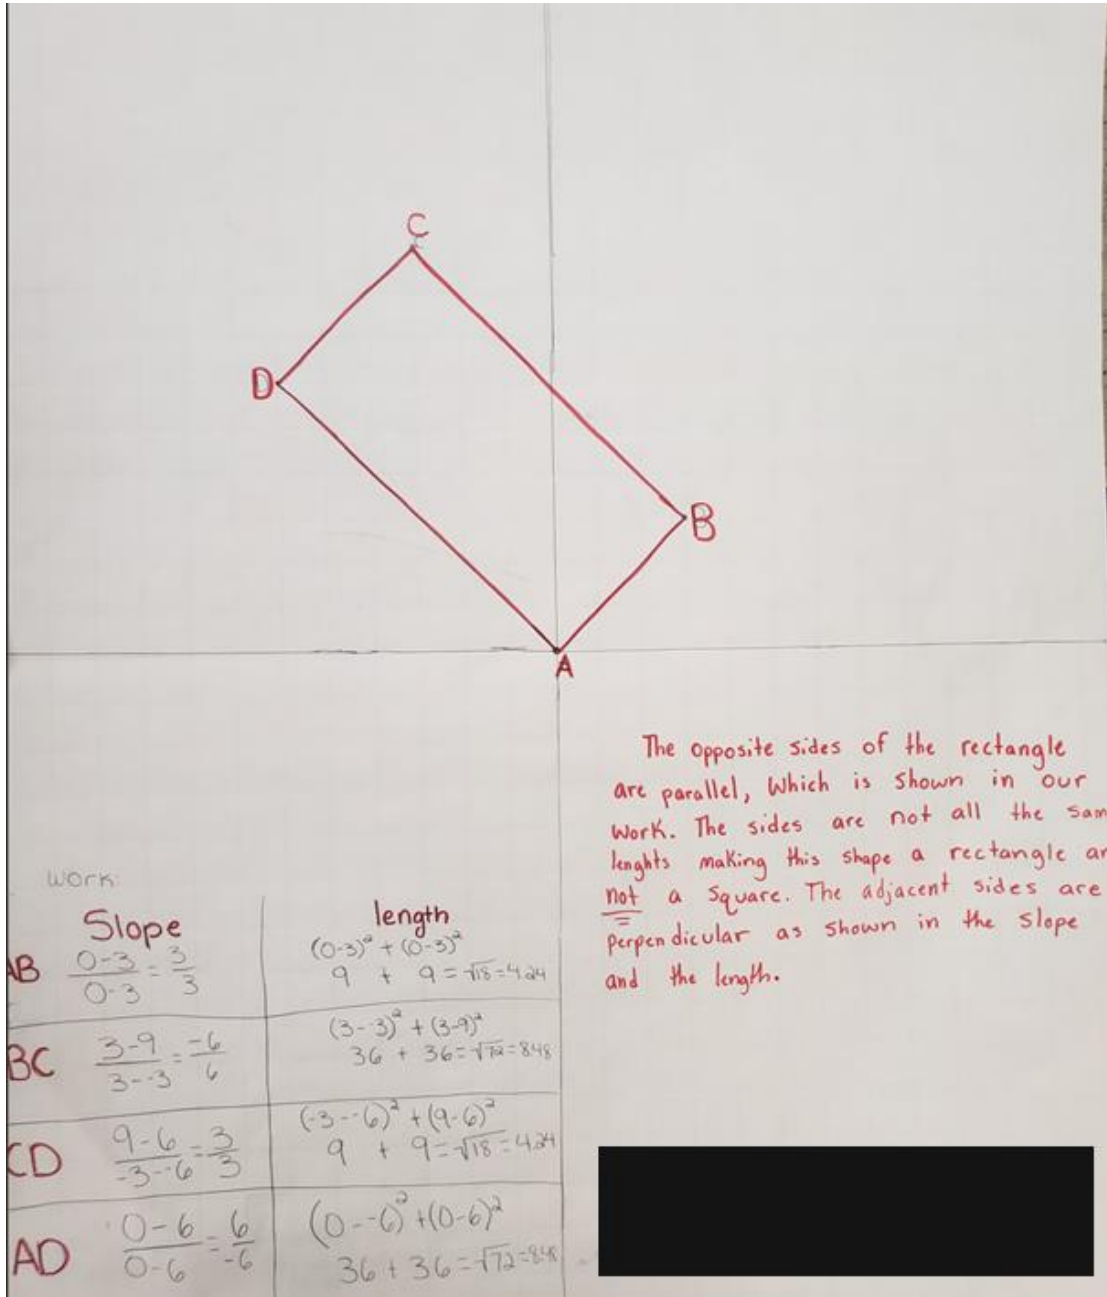 C
D
B
A
The opposite sides of the rectangle
are parallel, Which is Shown in our
work. The sides are not all the sam
lenghts making this shape a rectangle an
not a Square. The adjacent sides are
perpendicular as shown in the slope
and the length.
work:
Slope
length
AB
0-3/0-3 = 3/3
(0-3)² + (0-3)²
9 + 9 = √18 = 4.24
BC
3-9/3--3 = -6/6
(3--3)² + (3-9)²
36 + 36 = √72 = 8.48
CD
9-6/-3--6 = 3/3
(-3--6)² + (9-6)²
9 + 9 = √18 = 4.24
AD
0-6/0-6 = 6/-6
(0--6)² + (0-6)²
36 + 36 = √72 = 8.48